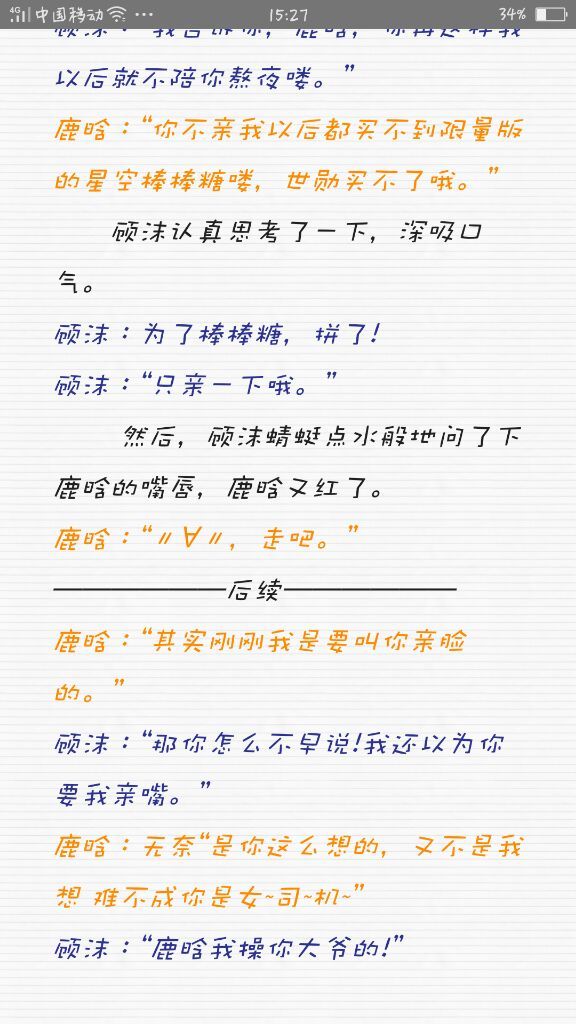 4G 中国移动 ... 15:27 34%
顾沫:“我告诉你,鹿晗,你再这样我
以后就不陪你熬夜喽。”
鹿晗:“你不亲我以后都买不到限量版
的星空棒棒糖喽,世勋买不了哦。”
顾沫认真思考了一下,深吸口
气。
顾沫:为了棒棒糖,拼了!
顾沫:“只亲一下哦。”
然后,顾沫蜻蜓点水般地问了下
鹿晗的嘴唇,鹿晗又红了。
鹿晗:“〃∀〃,走吧。”
——————后续——————
鹿晗:“其实刚刚我是要叫你亲脸
的。”
顾沫:“那你怎么不早说!我还以为你
要我亲嘴。”
鹿晗:无奈“是你这么想的,又不是我
想 难不成你是女~司~机~”
顾沫:“鹿晗我操你大爷的!”